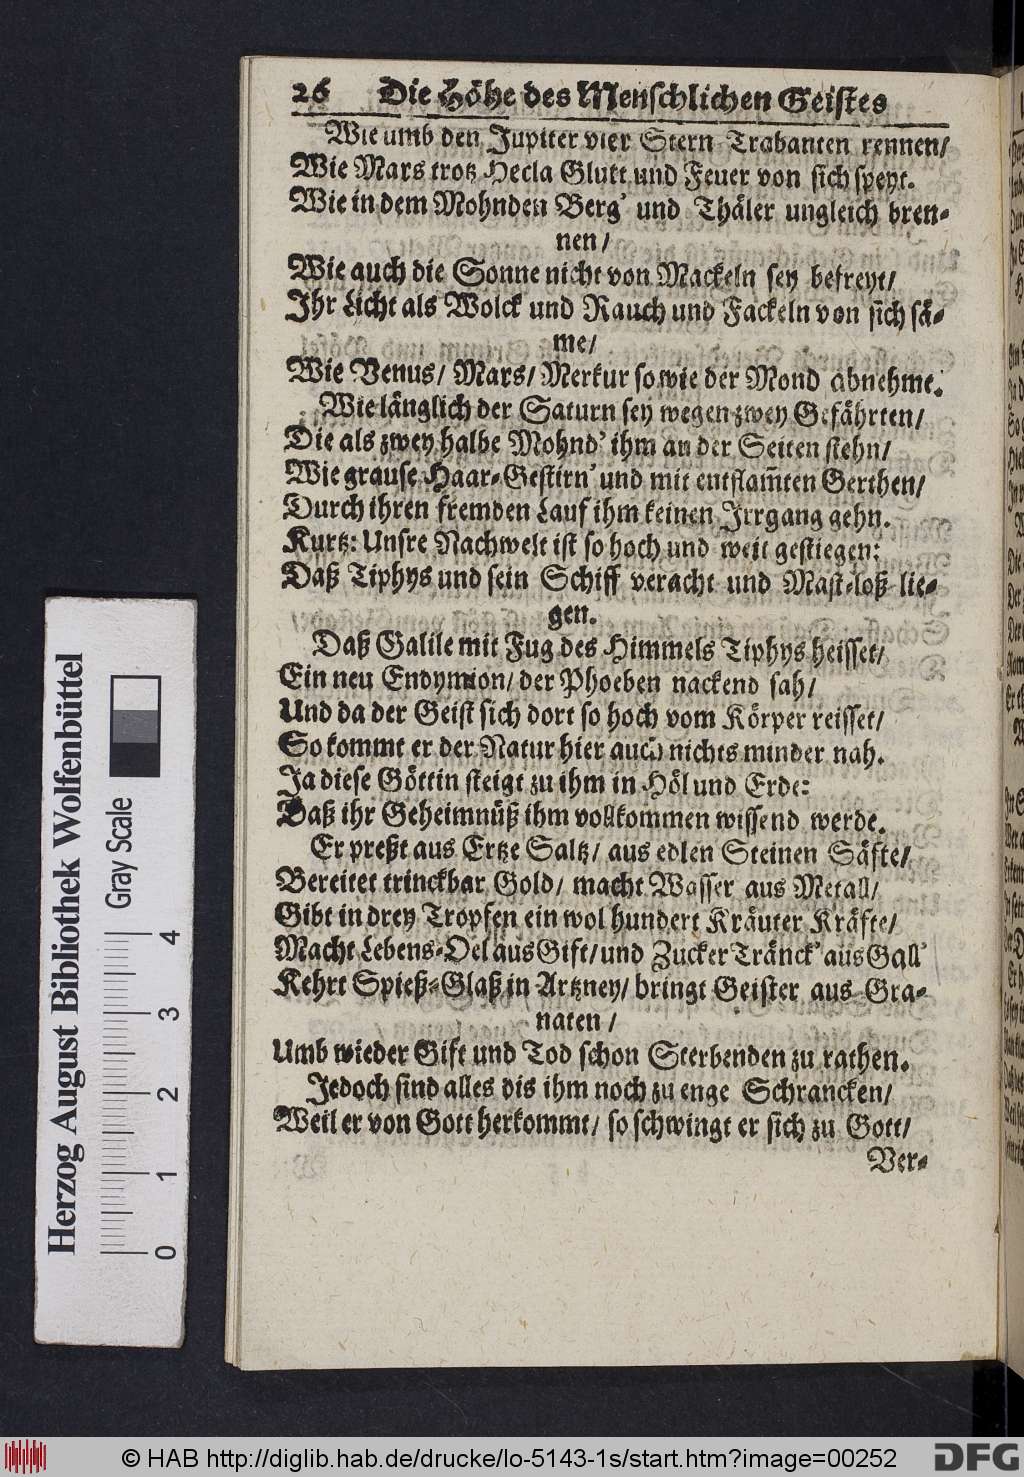 26 Die Höhe des Menschlichen Geistes
Wie umb den Jupiter vier Stern Trabanten rennen/
Wie Mars trotz Hecla Glutt und Feuer von sich speyt.
Wie in dem Mohnden Berg' und Thäler ungleich bren-
nen/
Wie auch die Sonne nicht von Mackeln sey befreyt/
Ihr Licht als Wolck und Rauch und Fackeln von sich sä-
me/
Wie Venus/ Mars/ Merkur so wie der Mond abnehme.
Wie länglich der Saturn sey wegen zwey Gefährten/
Die als zwey halbe Mohnd' ihm an der Seiten stehn/
Wie grause Haar-Gestirn' und mit entflam̃ten Gerthen/
Durch ihren fremden Lauf ihm keinen Irrgang gehn.
Kurtz: Unsre Nachwelt ist so hoch und weit gestiegen:
Daß Tiphys und sein Schiff veracht und Mast-loß lie-
gen.
Daß Galile mit Fug des Himmels Tiphys heisset/
Ein neu Endymion/ der Phoeben nackend sah/
Und da der Geist sich dort so hoch vom Körper reisset/
So kommt er der Natur hier auch nichts minder nah.
Ja diese Göttin steigt zu ihm in Höl und Erde:
Daß ihr Geheimnüß ihm vollkommen wissend werde.
Er preßt aus Ertze Saltz/ aus edlen Steinen Säfte/
Bereitet trinckbar Gold/ macht Wasser aus Metall/
Gibt in drey Tropfen ein wol hundert Kräuter Kräfte/
Macht Lebens-Oel aus Gift/ und Zucker Tränck' aus Gall'
Kehrt Spieß-Glaß in Artzney/ bringt Geister aus Gra-
naten/
Umb wieder Gift und Tod schon Sterbenden zu rathen.
Jedoch sind alles dis ihm noch zu enge Schrancken/
Weil er von Gott herkommt/ so schwingt er sich zu Gott/
Ver-
Herzog August Bibliothek Wolfenbüttel
Gray Scale
0 1 2 3 4
© HAB http://diglib.hab.de/drucke/lo-5143-1s/start.htm?image=00252
DFG